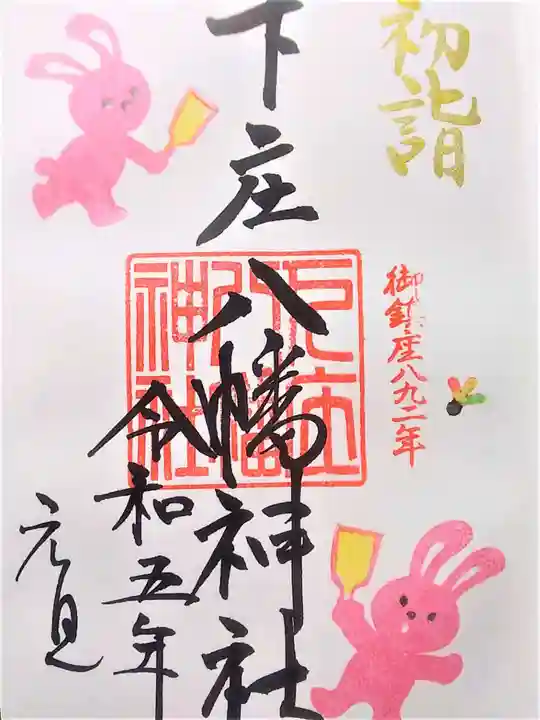 初詣
御鎮座八九二年
下庄八幡神社
令和五年
元旦